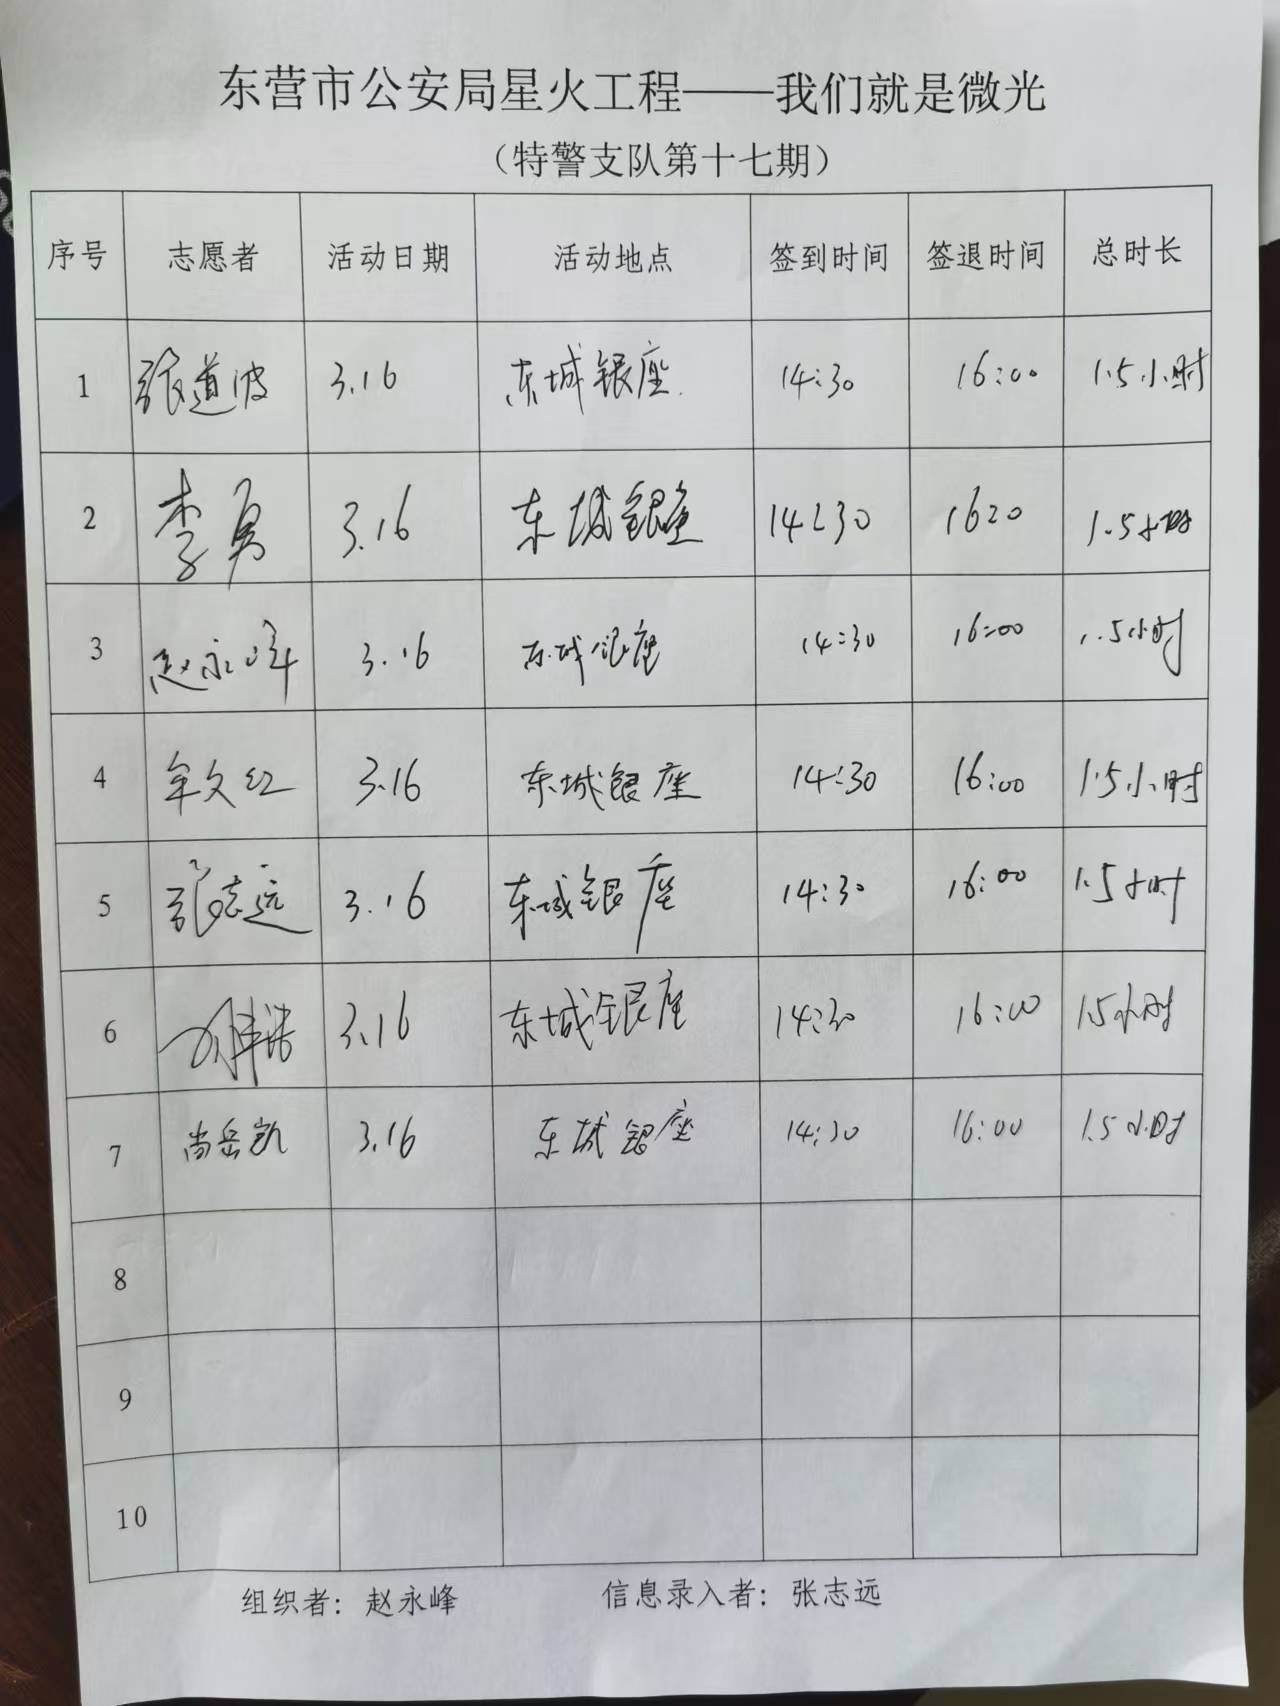 东营市公安局星火工程——我们就是微光
（特警支队第十七期）
序号 志愿者 活动日期 活动地点 签到时间 签退时间 总时长
1 张道波 3.16 东城银座 14:30 16:00 1.5小时
2 李勇 3.16 东城银座 14:30 1620 1.5小时
3 赵永峰 3.16 东城银座 14:30 16:00 1.5小时
4 牟文红 3.16 东城银座 14:30 16:00 1.5小时
5 张志远 3.16 东城银座 14:30 16:00 1.5小时
6 3.16 东城银座 14:30 16:00 1.5小时
7 尚岳凯 3.16 东城银座 14:30 16:00 1.5小时
8
9
10
组织者：赵永峰 信息录入者：张志远